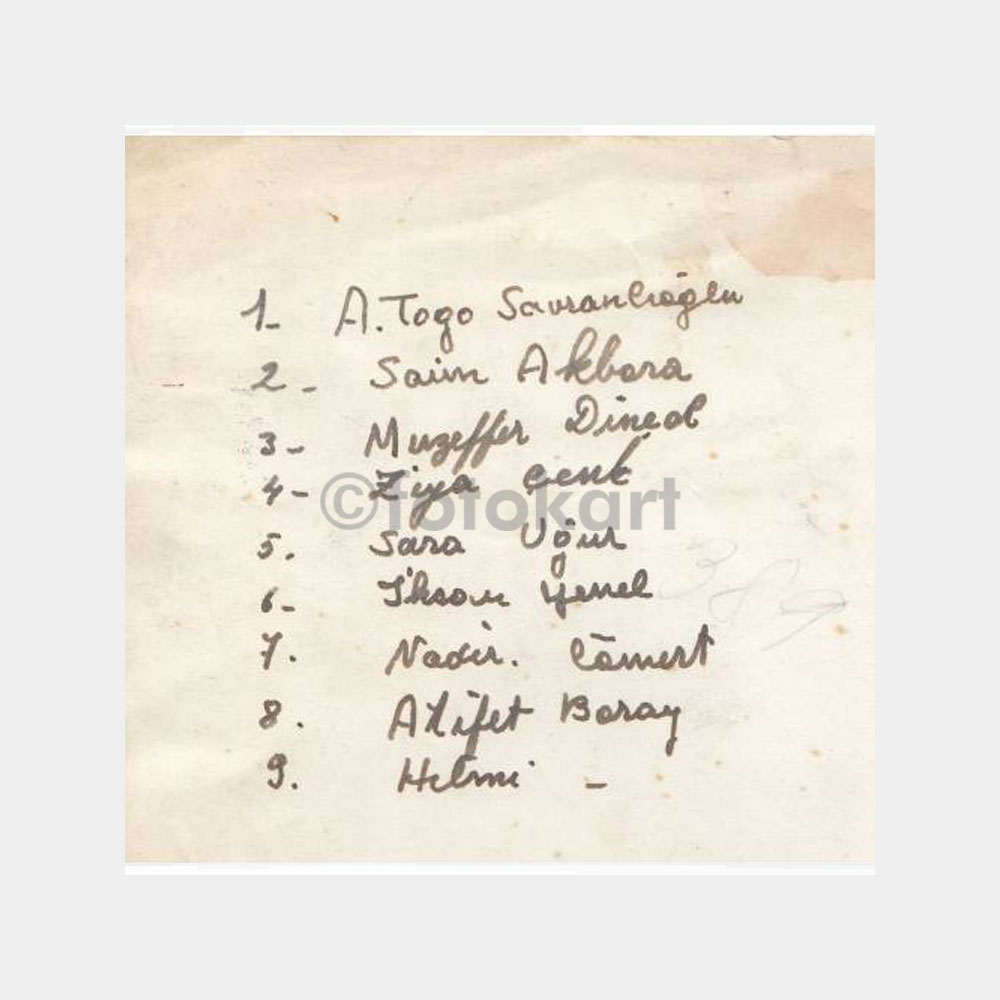 1- A. Togo Savranlıoğlu
2- Saim Akbora
3- Muzeffer Dincol
4- Ziya Cenk
5. Sara Uğur
6- İhsan Yenel
7. Nadir. Cömert
8. Atifet Boray
9. Helmi -
©fotokart
389